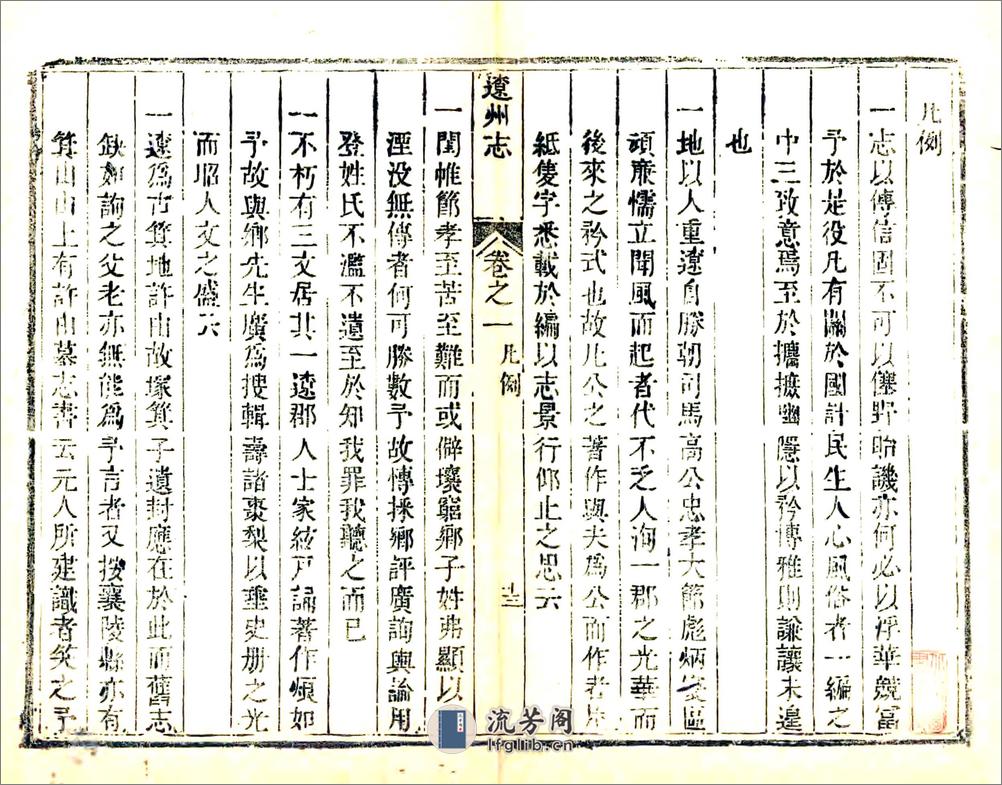 凡例
一志以傳信固不可以僿野貽譏亦何必以浮華競富
予於是役凡有關於國計民生人心風俗者一編之
中三致意焉至於攟摭幽隱以矜博雅則謙讓未遑
也
一地以人重遼自勝朝司馬高公忠孝大節彪炳區
頑廉懦立聞風而起者代不乏人洵一郡之光華而
後來之矜式也故凡公之著作與夫為公而作者片
紙隻字悉載於編以志景行仰止之思云
遼州志
卷之一
凡例
一閨帷節孝至苦至難而或僻壤窮鄉子姓弗顯以
湮没無傳者何可勝數予故博採鄉評廣詢輿論用
登姓氏不濫不遺至於知我罪我聽之而已
一不朽有三文居其一遼郡人士家絃戸誦著作頗如
予故與鄉先生廣為搜輯壽諸棗梨以埀史册之光
而昭人文之盛云
一遼為古箕地許由故塚箕子遺封應在於此而舊志
缺如詢之父老亦無能為予言者又按襄陵縣亦有
箕山山上有許由墓志書云元人所建識者笑之予
流芳阁
lfglib.cn